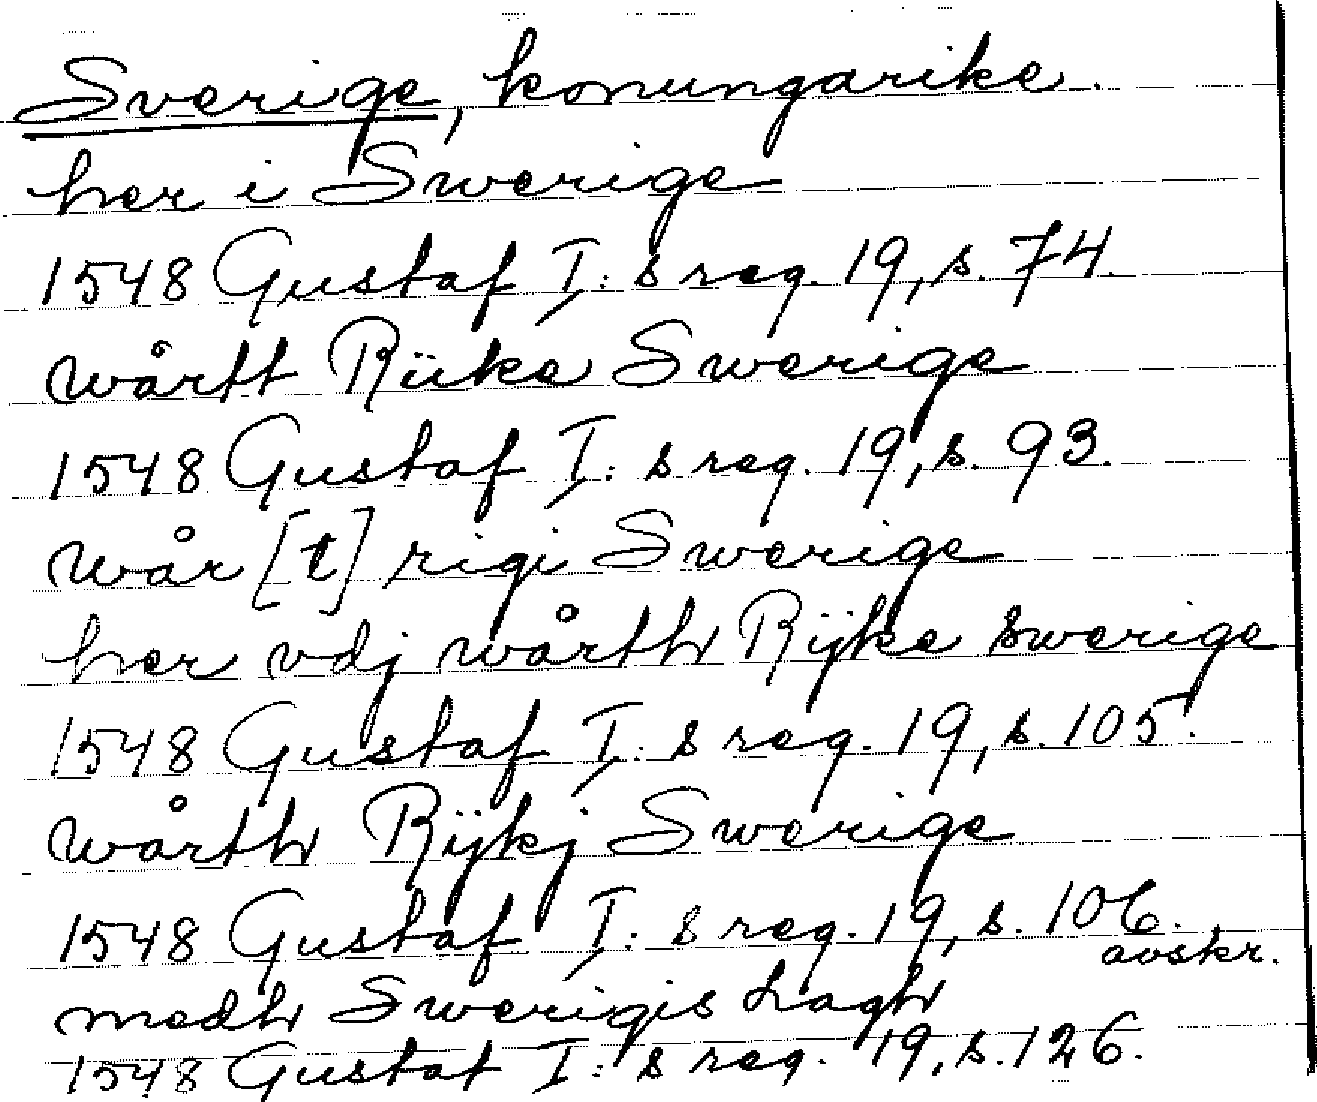 Sverige, konungarike.
her i Swerige
1548 Gustaf I:s reg. 19, s. 74.
wårtt Riike Swerige
1548 Gustaf I:s reg. 19, s. 93.
wår [t] rigi Swerige
her vdj wårth Rijke swerige
1548 Gustaf I:s reg. 19, s. 105.
wårth Rijkj Swerige
1548 Gustaf I:s reg. 19, s. 106.
avskr.
medh Swerigis Lagh
1548 Gustaf I:s reg. 19, s. 126.